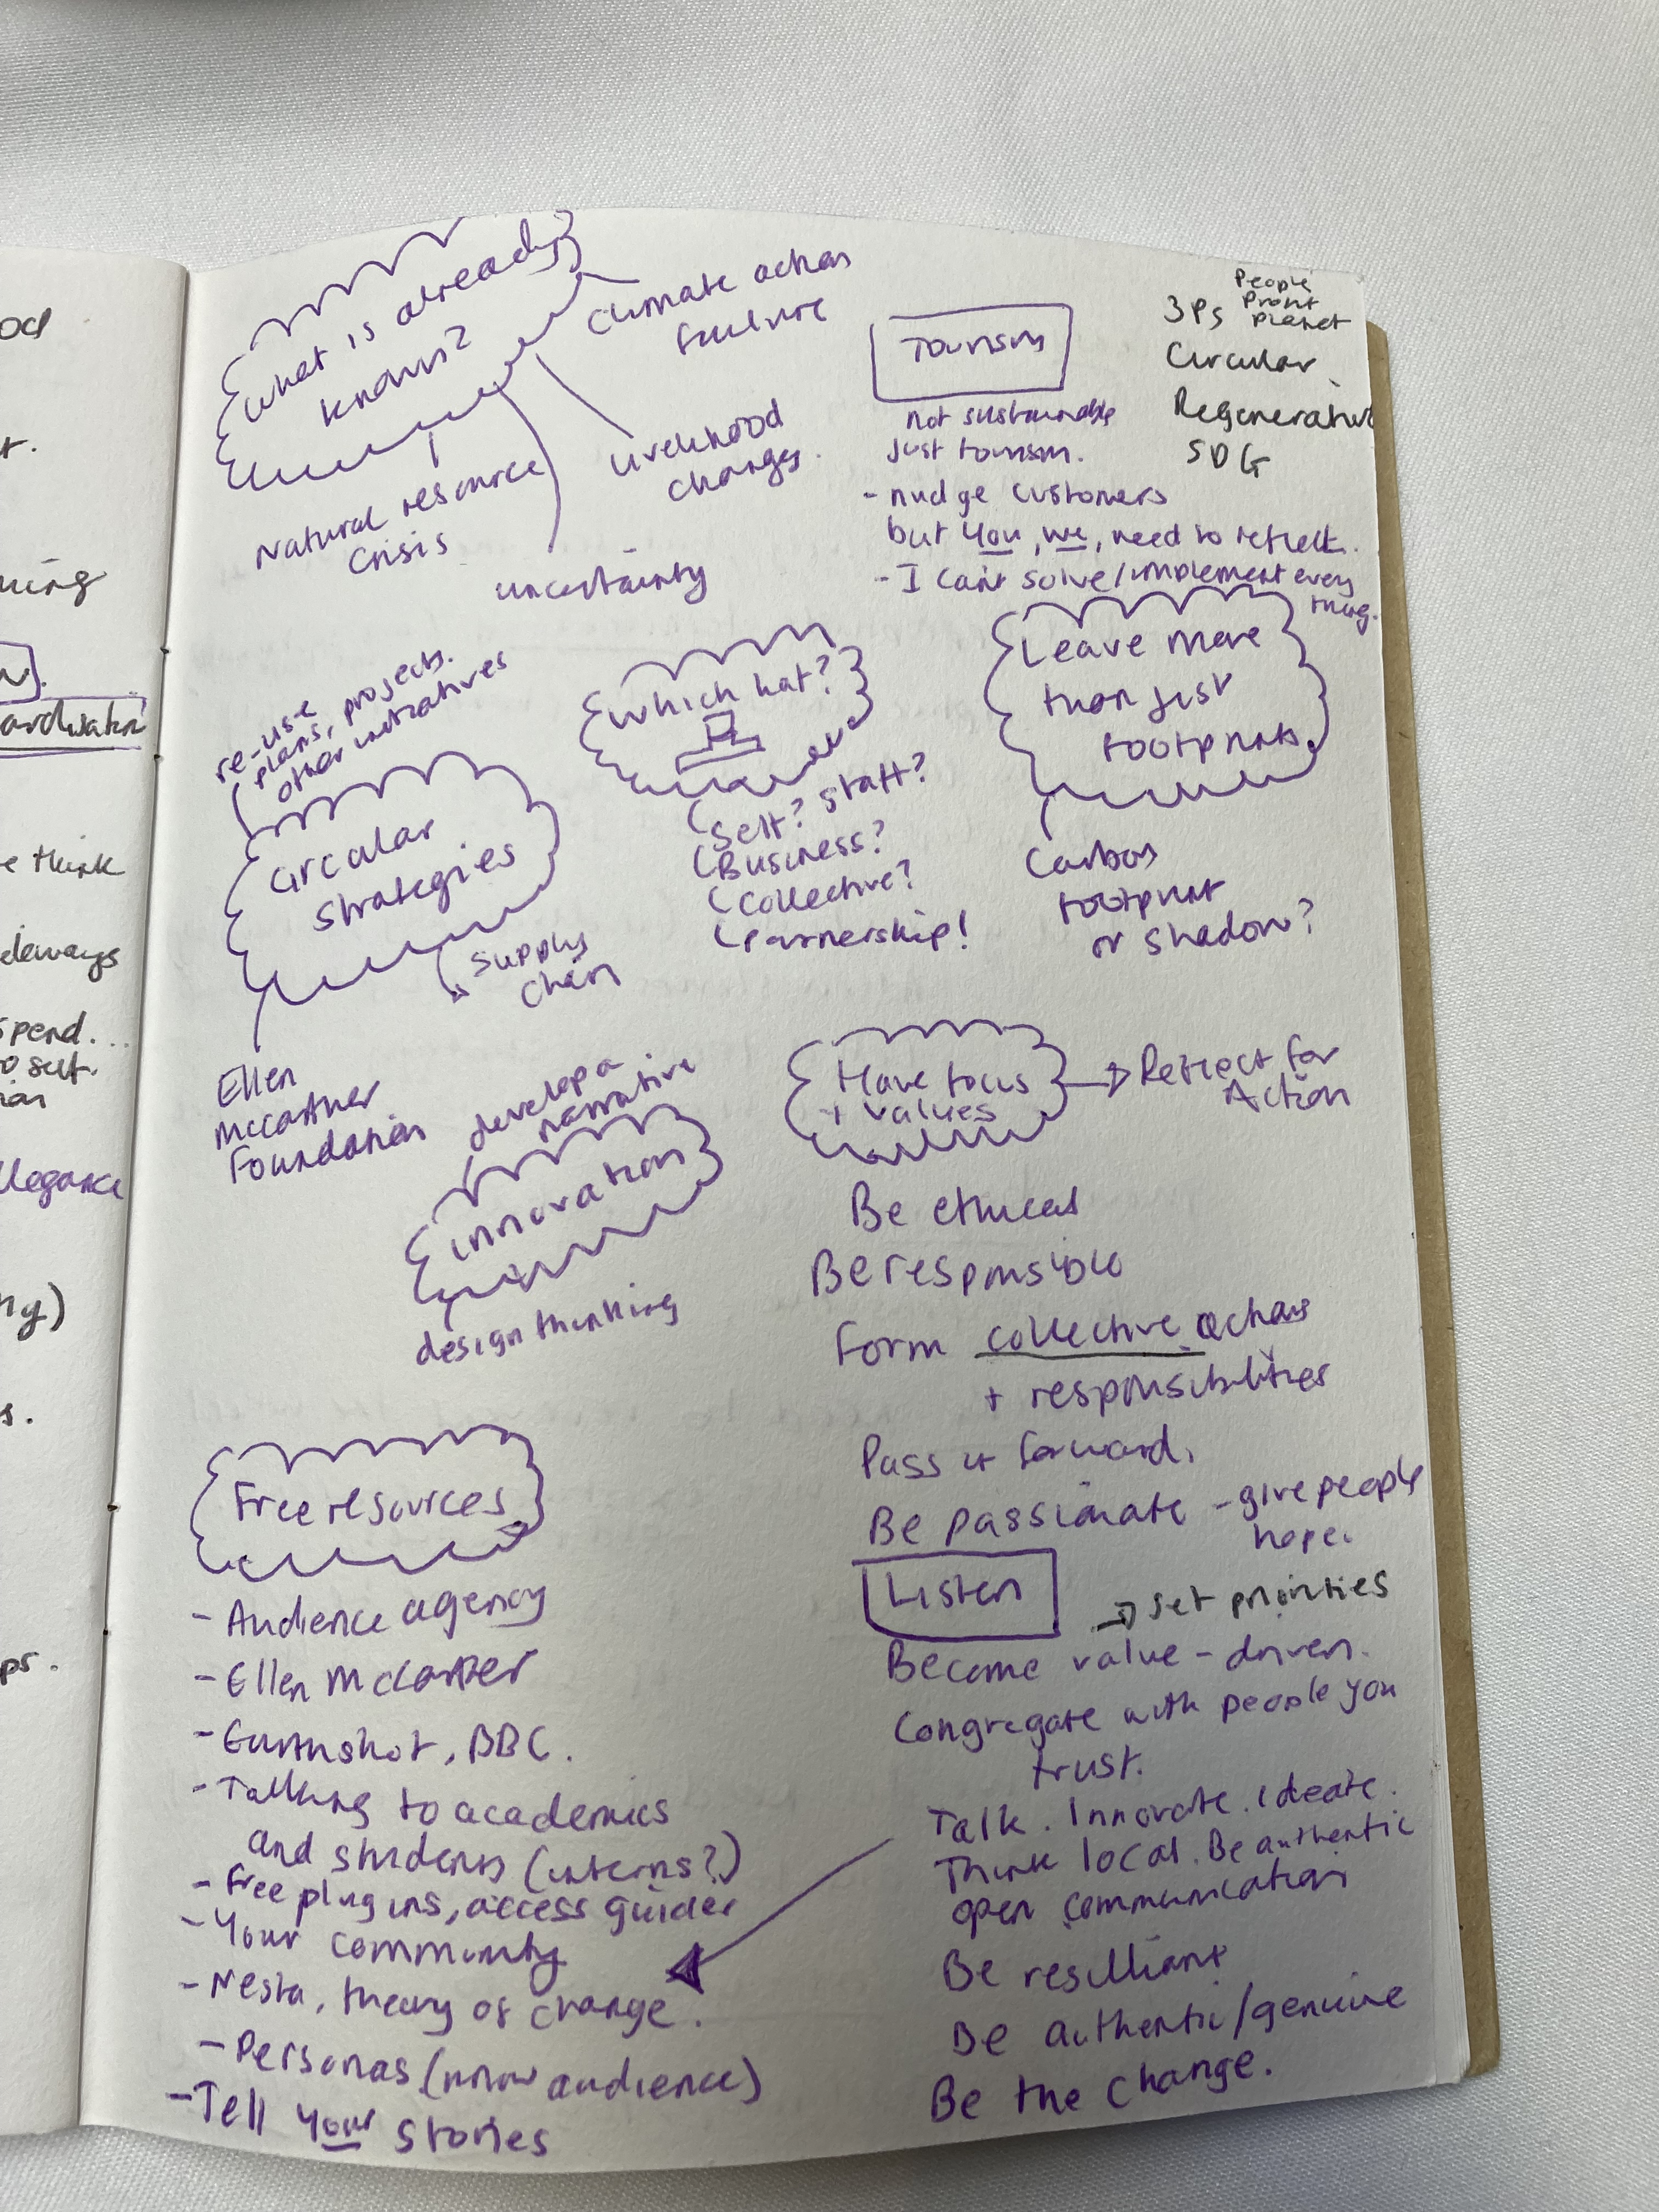 What is already
known?
Climate action
failure
Livelihood
changes.
Natural resource
crisis
uncertainty
Tourism
not sustainable
just tourism.
- nudge customers
but you, we, need to reflect.
- I can't solve/implement every
thing.
People
3Ps Profit
Planet
Circular
Regenerative
SDG
re-use
plans, projects.
other initiatives
Circular
strategies
supply
chain
Ellen
McCarther
Foundation
Which hat?
Self? Staff?
Business?
Collective?
Partnership!
Leave more
than just
footprints
Carbon
footprint
or shadow?
develop a
narrative
innovation
design thinking
Have focus
+ values
Reflect for
Action
Be ethical
Be responsible
Form collective actions
+ responsibilities
Pass it forward.
Be passionate - give people
hope.
Listen
set priorities
Become value-driven.
Congregate with people you
trust.
Talk. Innovate. Ideate.
Think local. Be authentic
open communication
Be resilliant
Be authentic/genuine
Be the change.
Free resources
- Audience agency
- Ellen McCarther
- Earthshot, BBC.
- Talking to academics
and students (interns?)
- Free plug ins, access guides
- Your community
- Nesta, theory of change.
- Personas (know audience)
- Tell your stories
think
spend...